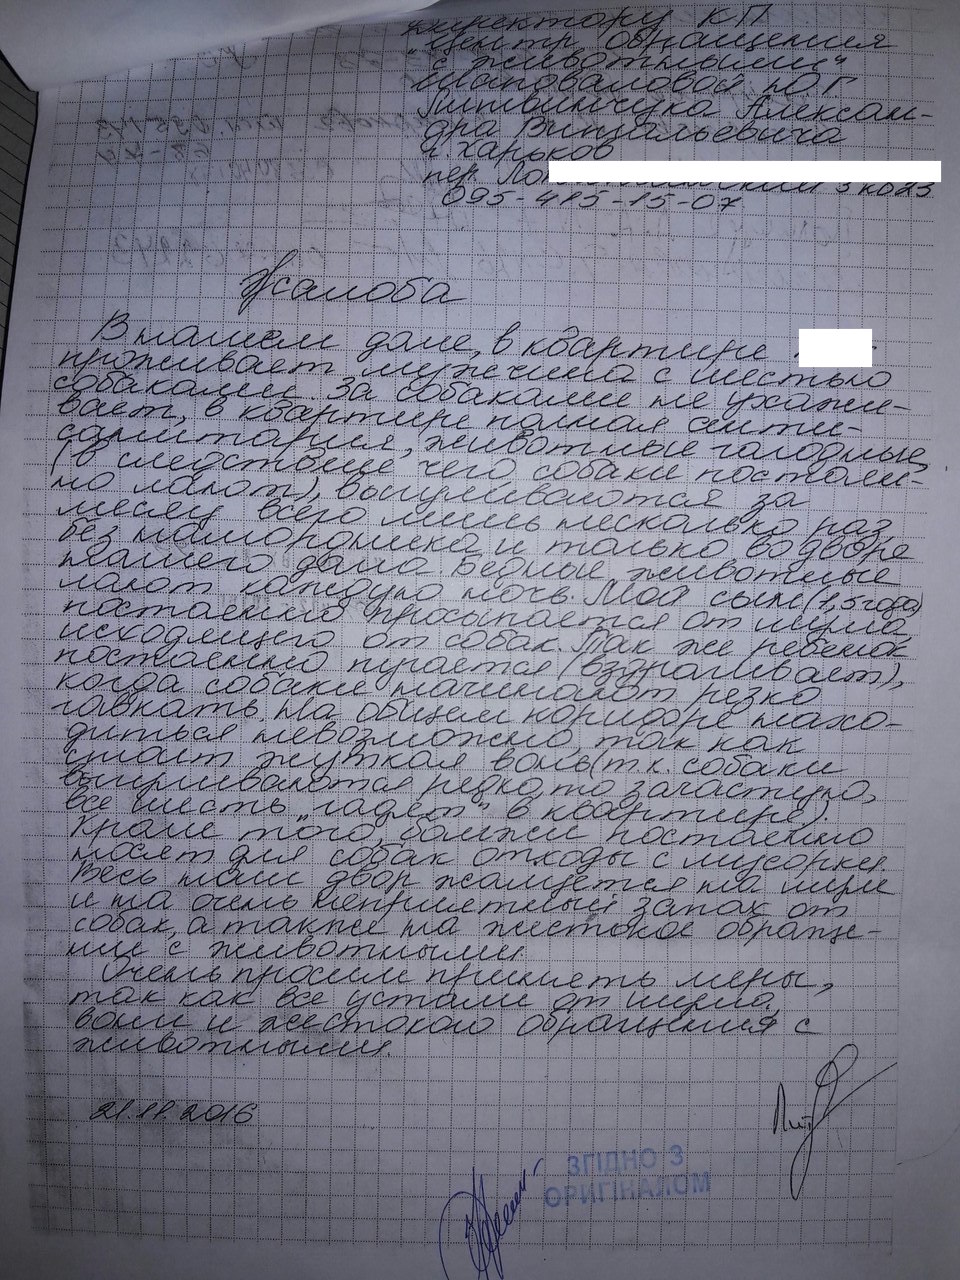 директору КП
"Центр обращения
с животными"
Шаповаловой Ю Г
Литвинчука Алексан-
дра Витальевича
г. Харьков
пер. Лоп
095-415-15-07
Жалоба
В нашем доме, в квартире
проживает мужчина с шестью
собаками. За собаками не ухажи-
вает, в квартире полная анти-
санитария, животные голодные
(в следствие чего собаки постаян-
но лают), выгуливаются за
месяц всего лишь несколько раз,
без намордника и только во дворе
нашего дома. Бедные животные
лают каждую ночь. Мой сын (1,5 года)
постаянно просыпается от шума
исходящего от собак. Так же ребенок
постаянно пугается (вздрагивает),
когда собаки начинают резко
гавкать. На общем коридоре нахо-
диться невозможно, так как
стоит жуткая вонь (т.к. собаки
выгуливаются редко, то зачастую,
все шесть "гадят" в квартире).
Кроме того, бомжи постаянно
носят для собак отходы с мусорки.
Весь наш двор жалуется на шум
и на очень неприятный запах от
собак, а также на жестокое обраще-
ние с животными.
Очень просим принять меры,
так как все устали от шума,
вони и жестокого обращения с
животными.
21.11.2016
Лит
ЗГІДНО З
ОРИГІНАЛОМ